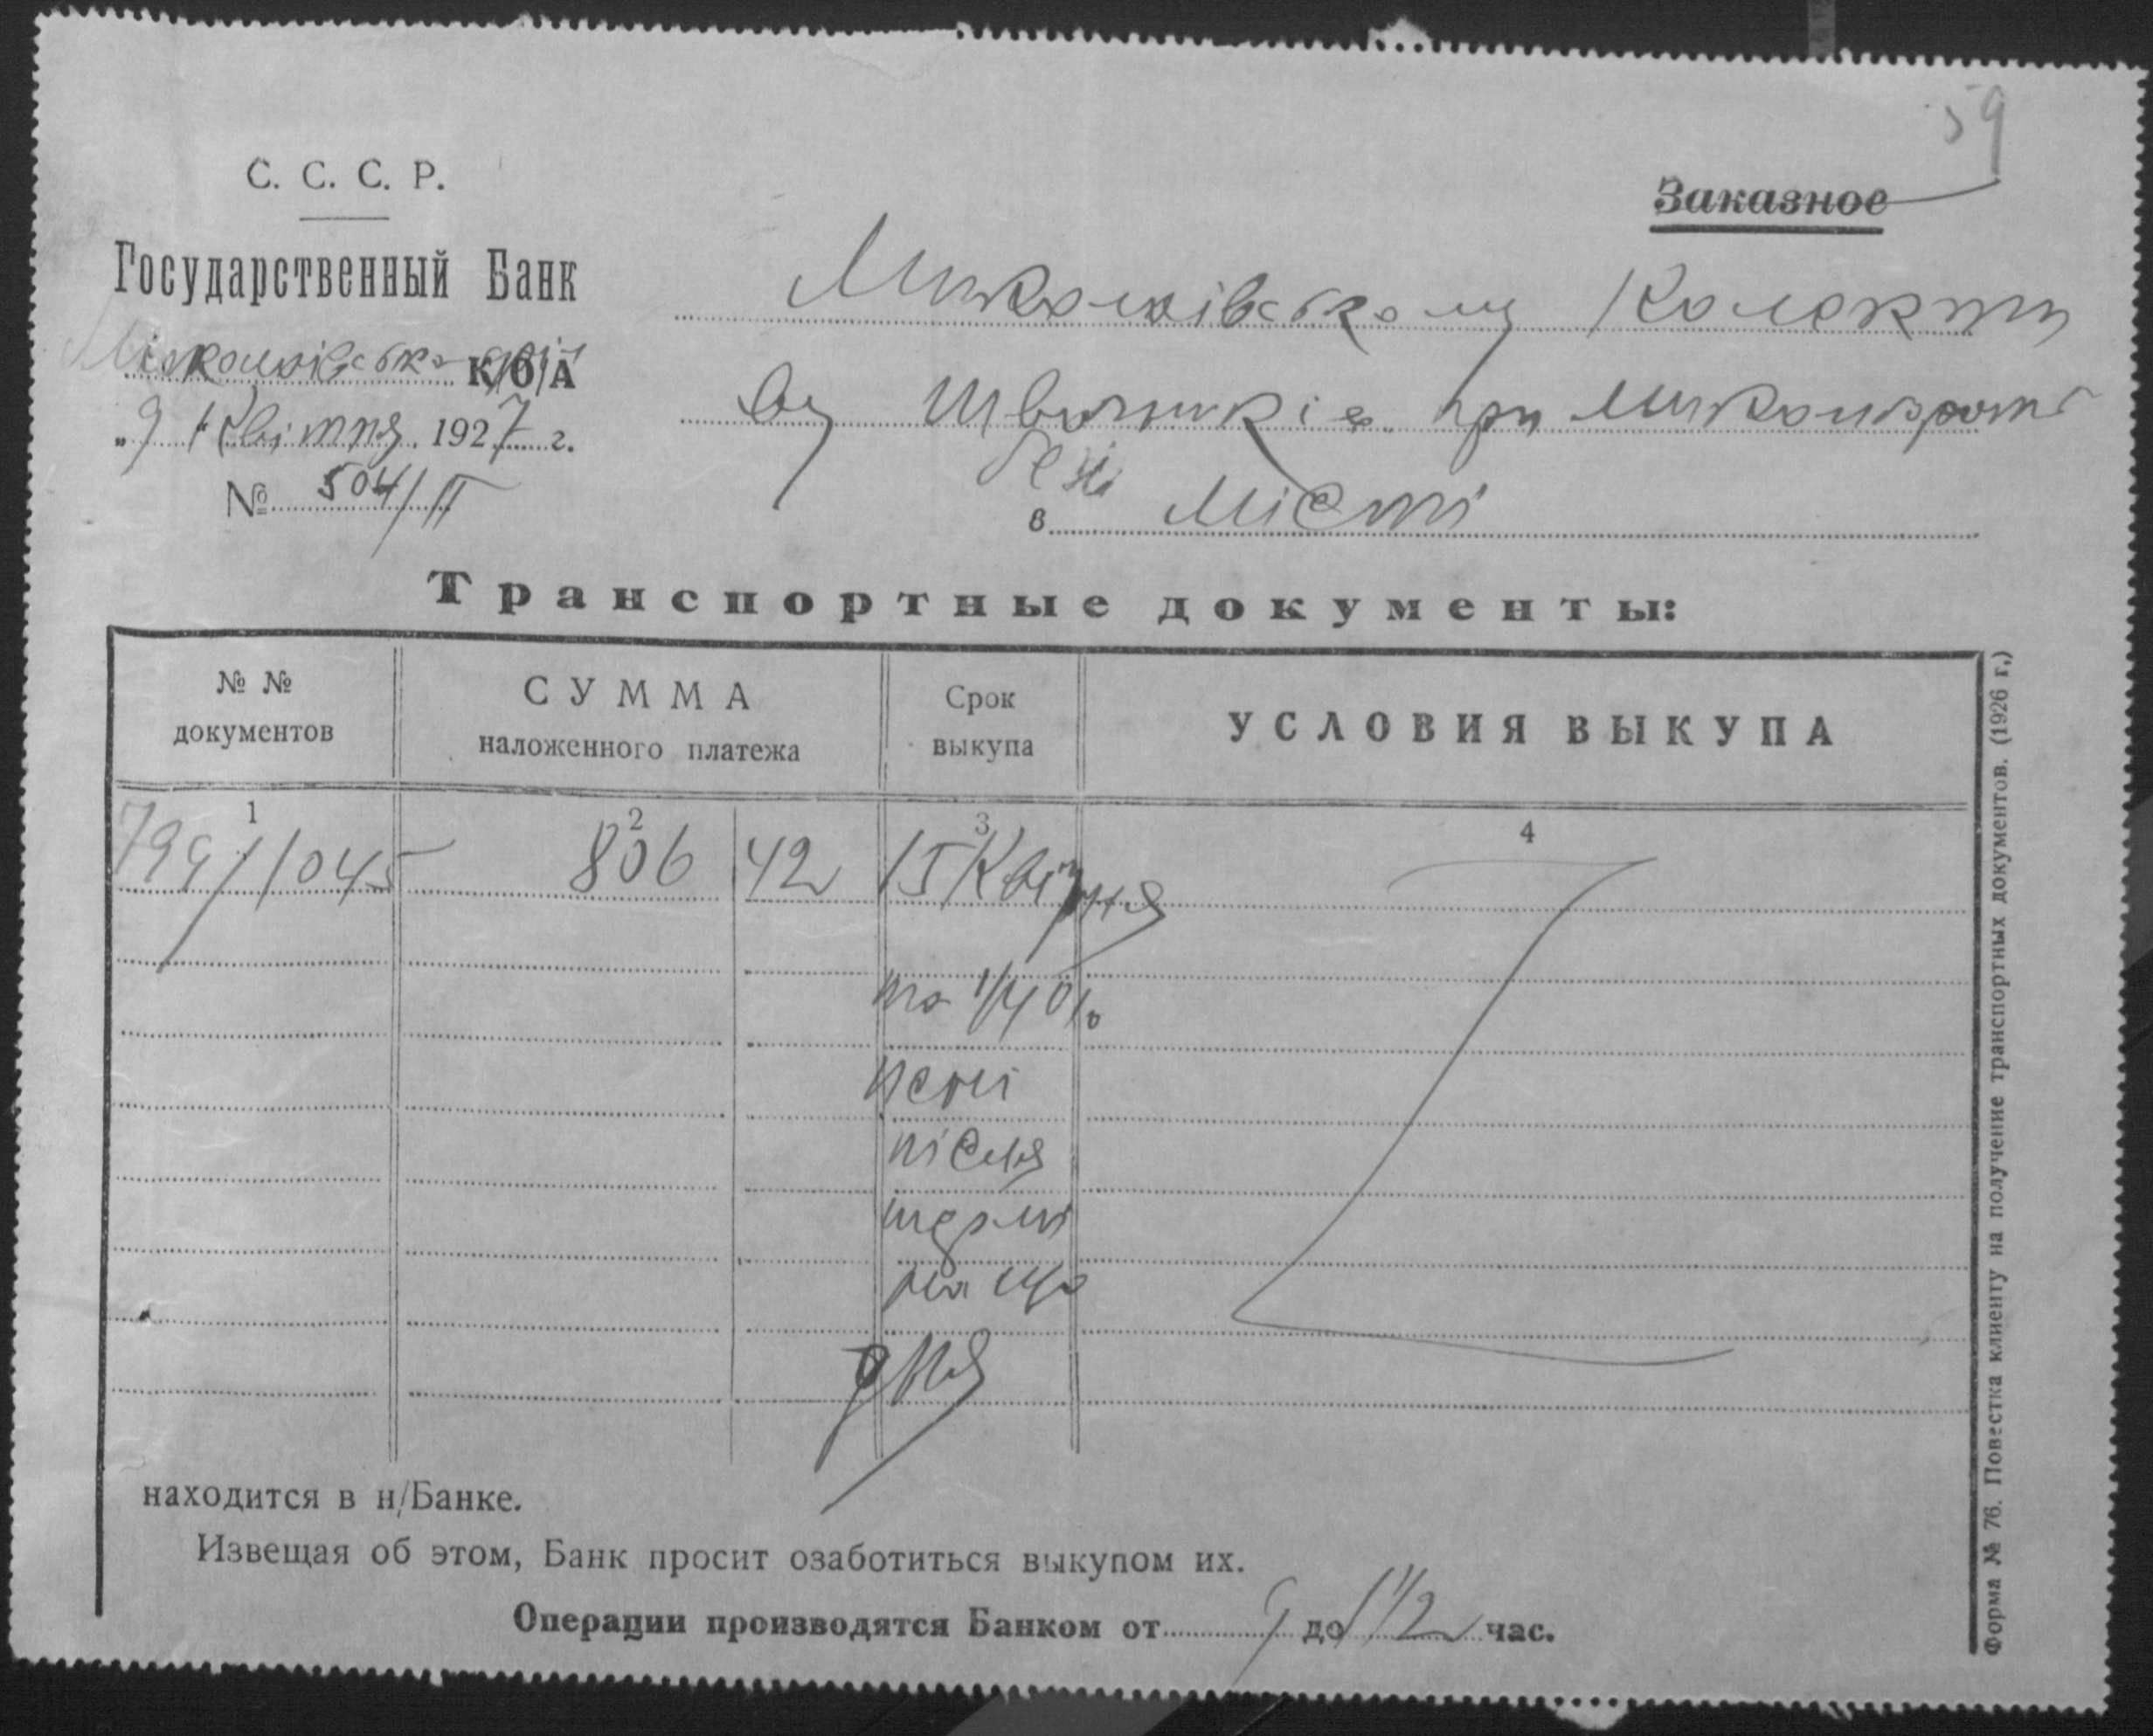 59
С. С. С. Р.
Заказное
Государственный Банк
Миколаївському Колекти
Миколаївська КОА
ву Швачків при
„9" Квітня 1927 г.
№ 504/II
в Місті
Транспортные документы:
№ № документов
СУММА наложенного платежа
Срок выкупа
УСЛОВИЯ ВЫКУПА
1 2 3 4
799/1045 806 42 15 Квітня
та 1/4 %
пені
після
терміна що
дня
находится в н/Банке.
Извещая об этом, Банк просит озаботиться выкупом их.
Операции производятся Банком от 9 до 1 1/2 час.
Форма № 76. Повестка клиенту на получение транспортных документов. (1926 г.)